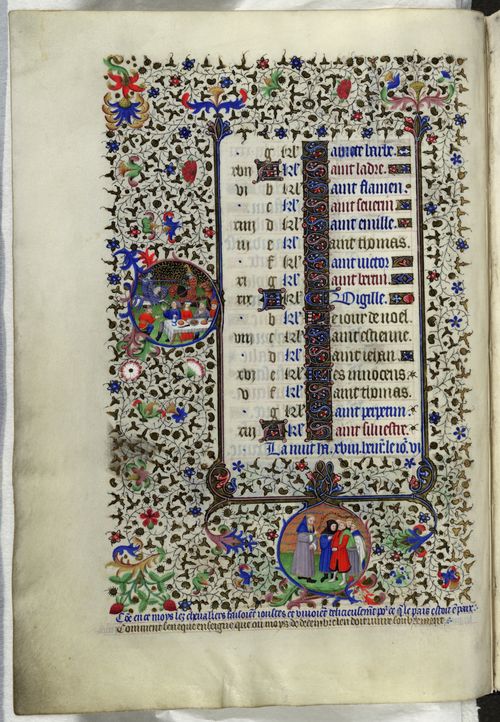 g kl' Sainte barbe.
xvii A kl' Saint ladre.
vi b kl' Saint flamen.
c kl' Saint severin
xiiii d kl' Saint emille.
iii e kl' Saint thomas.
f kl' Saint victor
xi g kl' Saint bertin.
xix A kl' Vigille.
b kl' Le iour de noel.
viii c kl' Saint estienne.
d kl' Saint iehan.
xvi e kl' Les innocens.
v f kl' Saint thomas.
g kl' Saint perpetin
xiii A kl' Saint silvestre.
La nuit ha xviii heur' le io' vi
en ce moys les chevaliers faisoient ioustes et vivoient delicieusement po' ce q' le pais estoit en paix
Comment seneque enseigne que ou moys de decembre len doit vivre sobrement